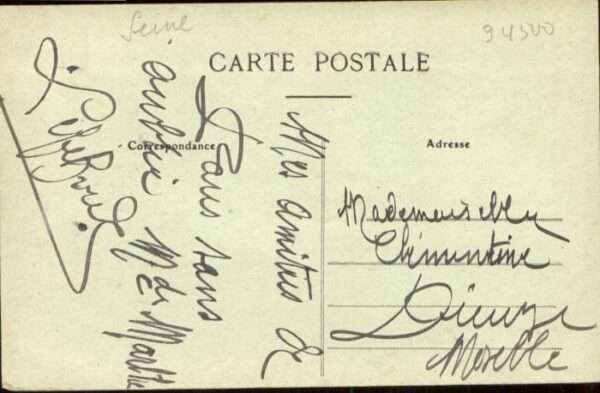 Seine
94500
CARTE POSTALE
Correspondance
Adresse
Mes amitiés de
Paris sans
oublier M de Marthe
Mademoiselle
Clémentine
Dieuze
Moselle